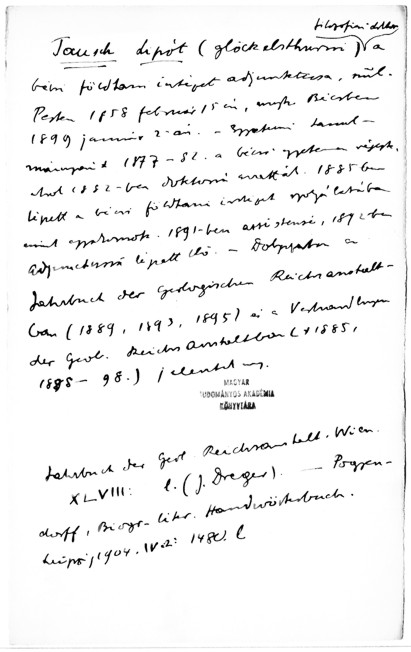 filozófiai doktor
Tausch Lipót (glöckelsthurni) a
bécsi földtani intézet adjunktusa, szül.
Pesten 1858 február 15-én, megh. Bécsben
1899 január 2-án. – Egyetemi tanul-
mányait 1877–82. a bécsi egyetemen végezte,
ahol 1882-ben doktorrá avatták. 1885-ben
lépett a bécsi földtani intézet szolgálatába
mint gyakornok. 1891-ben assistenssé, 1892-ben
adjunctussá lépett elő. – Dolgozatai a
Jahrbuch der Geologischen Reichsanstalt-
ban (1889, 1893, 1895) és a Verhandlungen
der Geol. Reichsanstaltban (1885,
1888–98.) jelentek meg.
MAGYAR
TUDOMÁNYOS AKADÉMIA
KÖNYVTÁRA
Jahrbuch der Geol Reichsanstalt. Wien.
XLVIII: l. (J. Dreger). — Poggen-
dorff, Biogr-liter. Handwörterbuch.
Leipzig 1904. IV.2: 1480. l